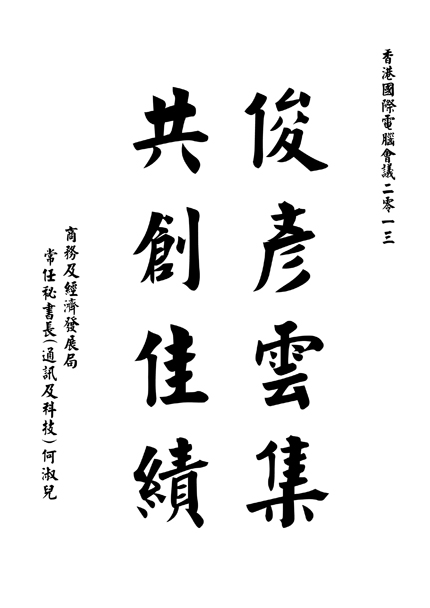 香港國際電腦會議二零一三
俊彥雲集
共創佳績
商務及經濟發展局
常任祕書長(通訊及科技)何淑兒